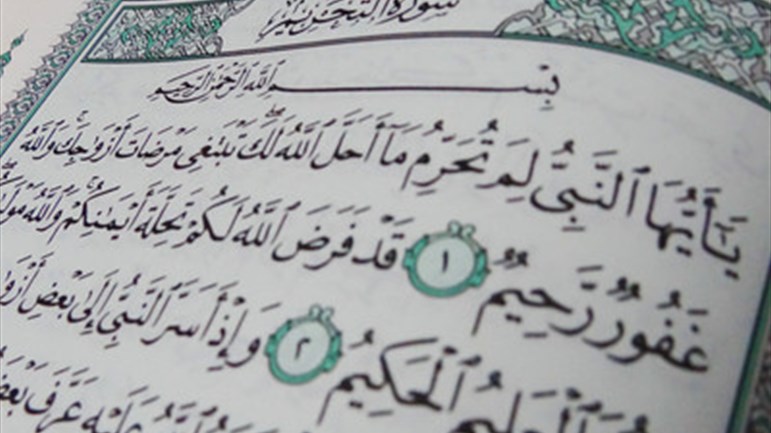 سُورَةُ التَّحْرِيمِ
بِسْمِ اللَّهِ الرَّحْمَٰنِ الرَّحِيمِ
يَٰٓأَيُّهَا ٱلنَّبِىُّ لِمَ تُحَرِّمُ مَآ أَحَلَّ ٱللَّهُ لَكَ ۖ تَبْتَغِى مَرْضَاتَ أَزْوَٰجِكَ ۚ وَٱللَّهُ
غَفُورٌ رَّحِيمٌ ١ قَدْ فَرَضَ ٱللَّهُ لَكُمْ تَحِلَّةَ أَيْمَٰنِكُمْ ۚ وَٱللَّهُ
ٱلْحَكِيمُ ٢ وَإِذْ أَسَرَّ ٱلنَّبِىُّ إِلَىٰ بَعْضِ
عَلَيْهِ عَرَّفَ